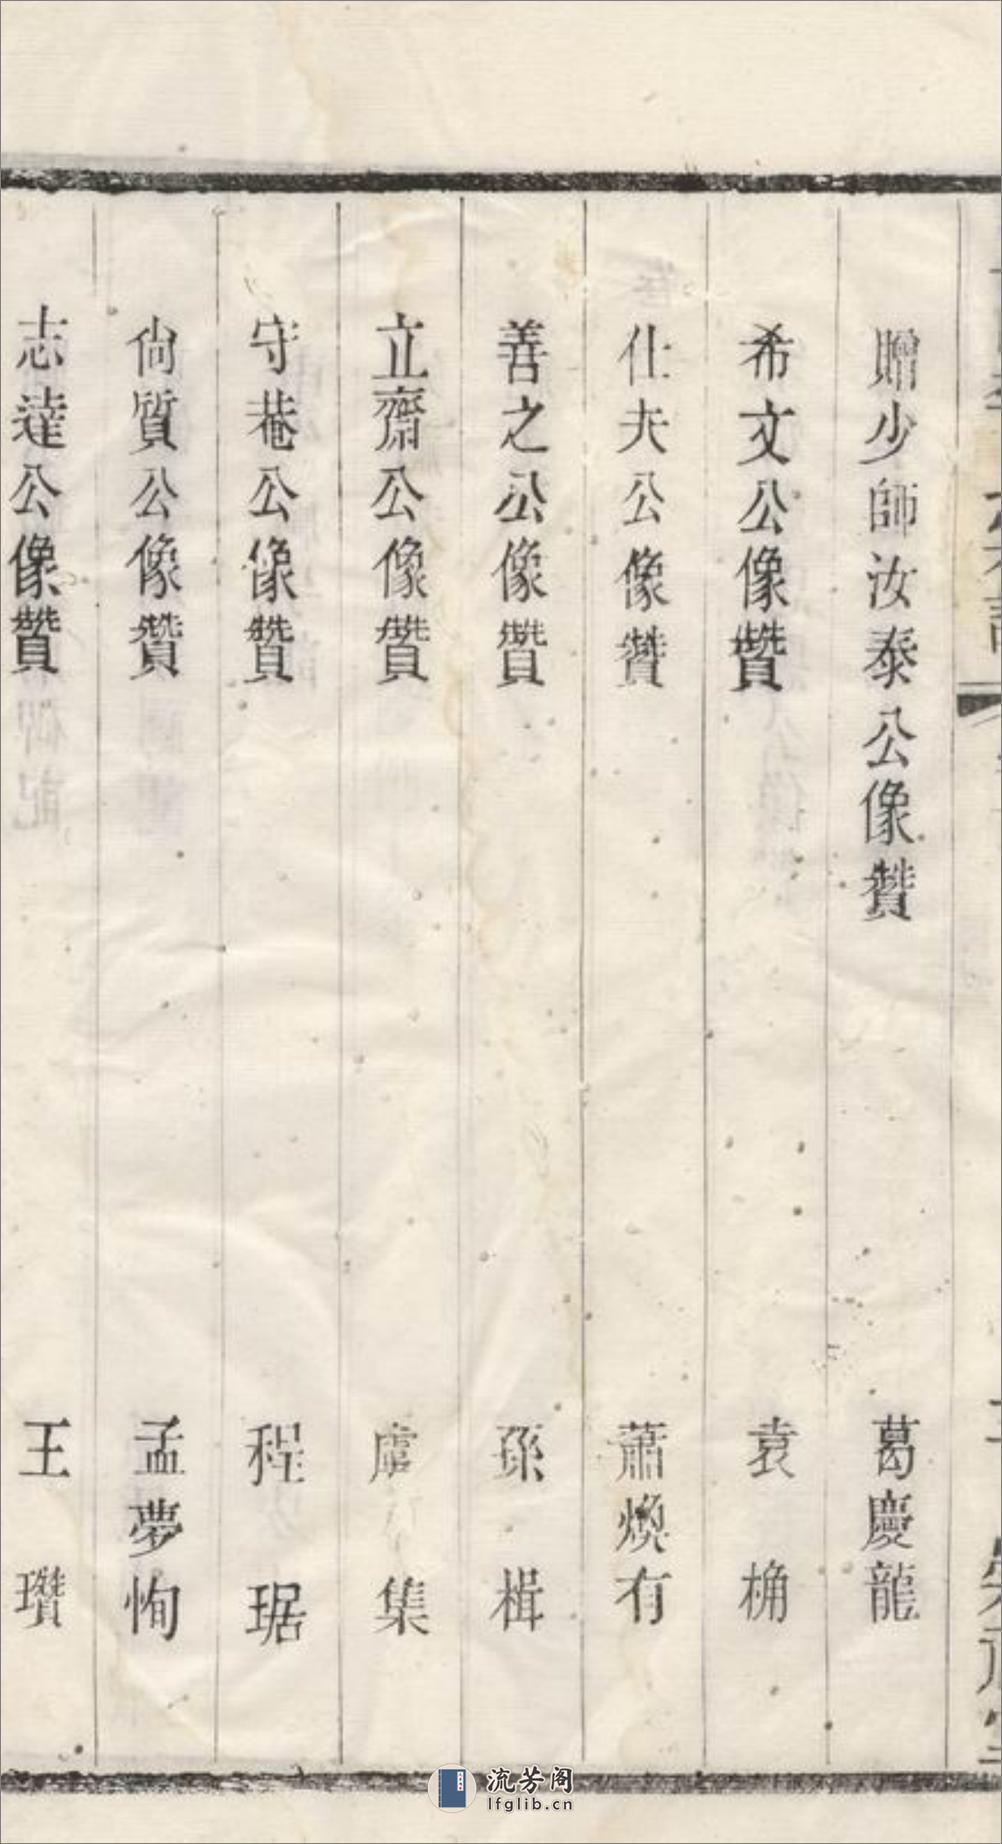 贈少師汝泰公像贊 葛慶龍
希文公像贊 袁桷
仕夫公像贊 蕭煥有
善之公像贊 孫楫
立齋公像贊 虞集
守菴公像贊 程琚
尚質公像贊 孟夢恂
志達公像贊 王瓚
流芳阁
lfglib.cn